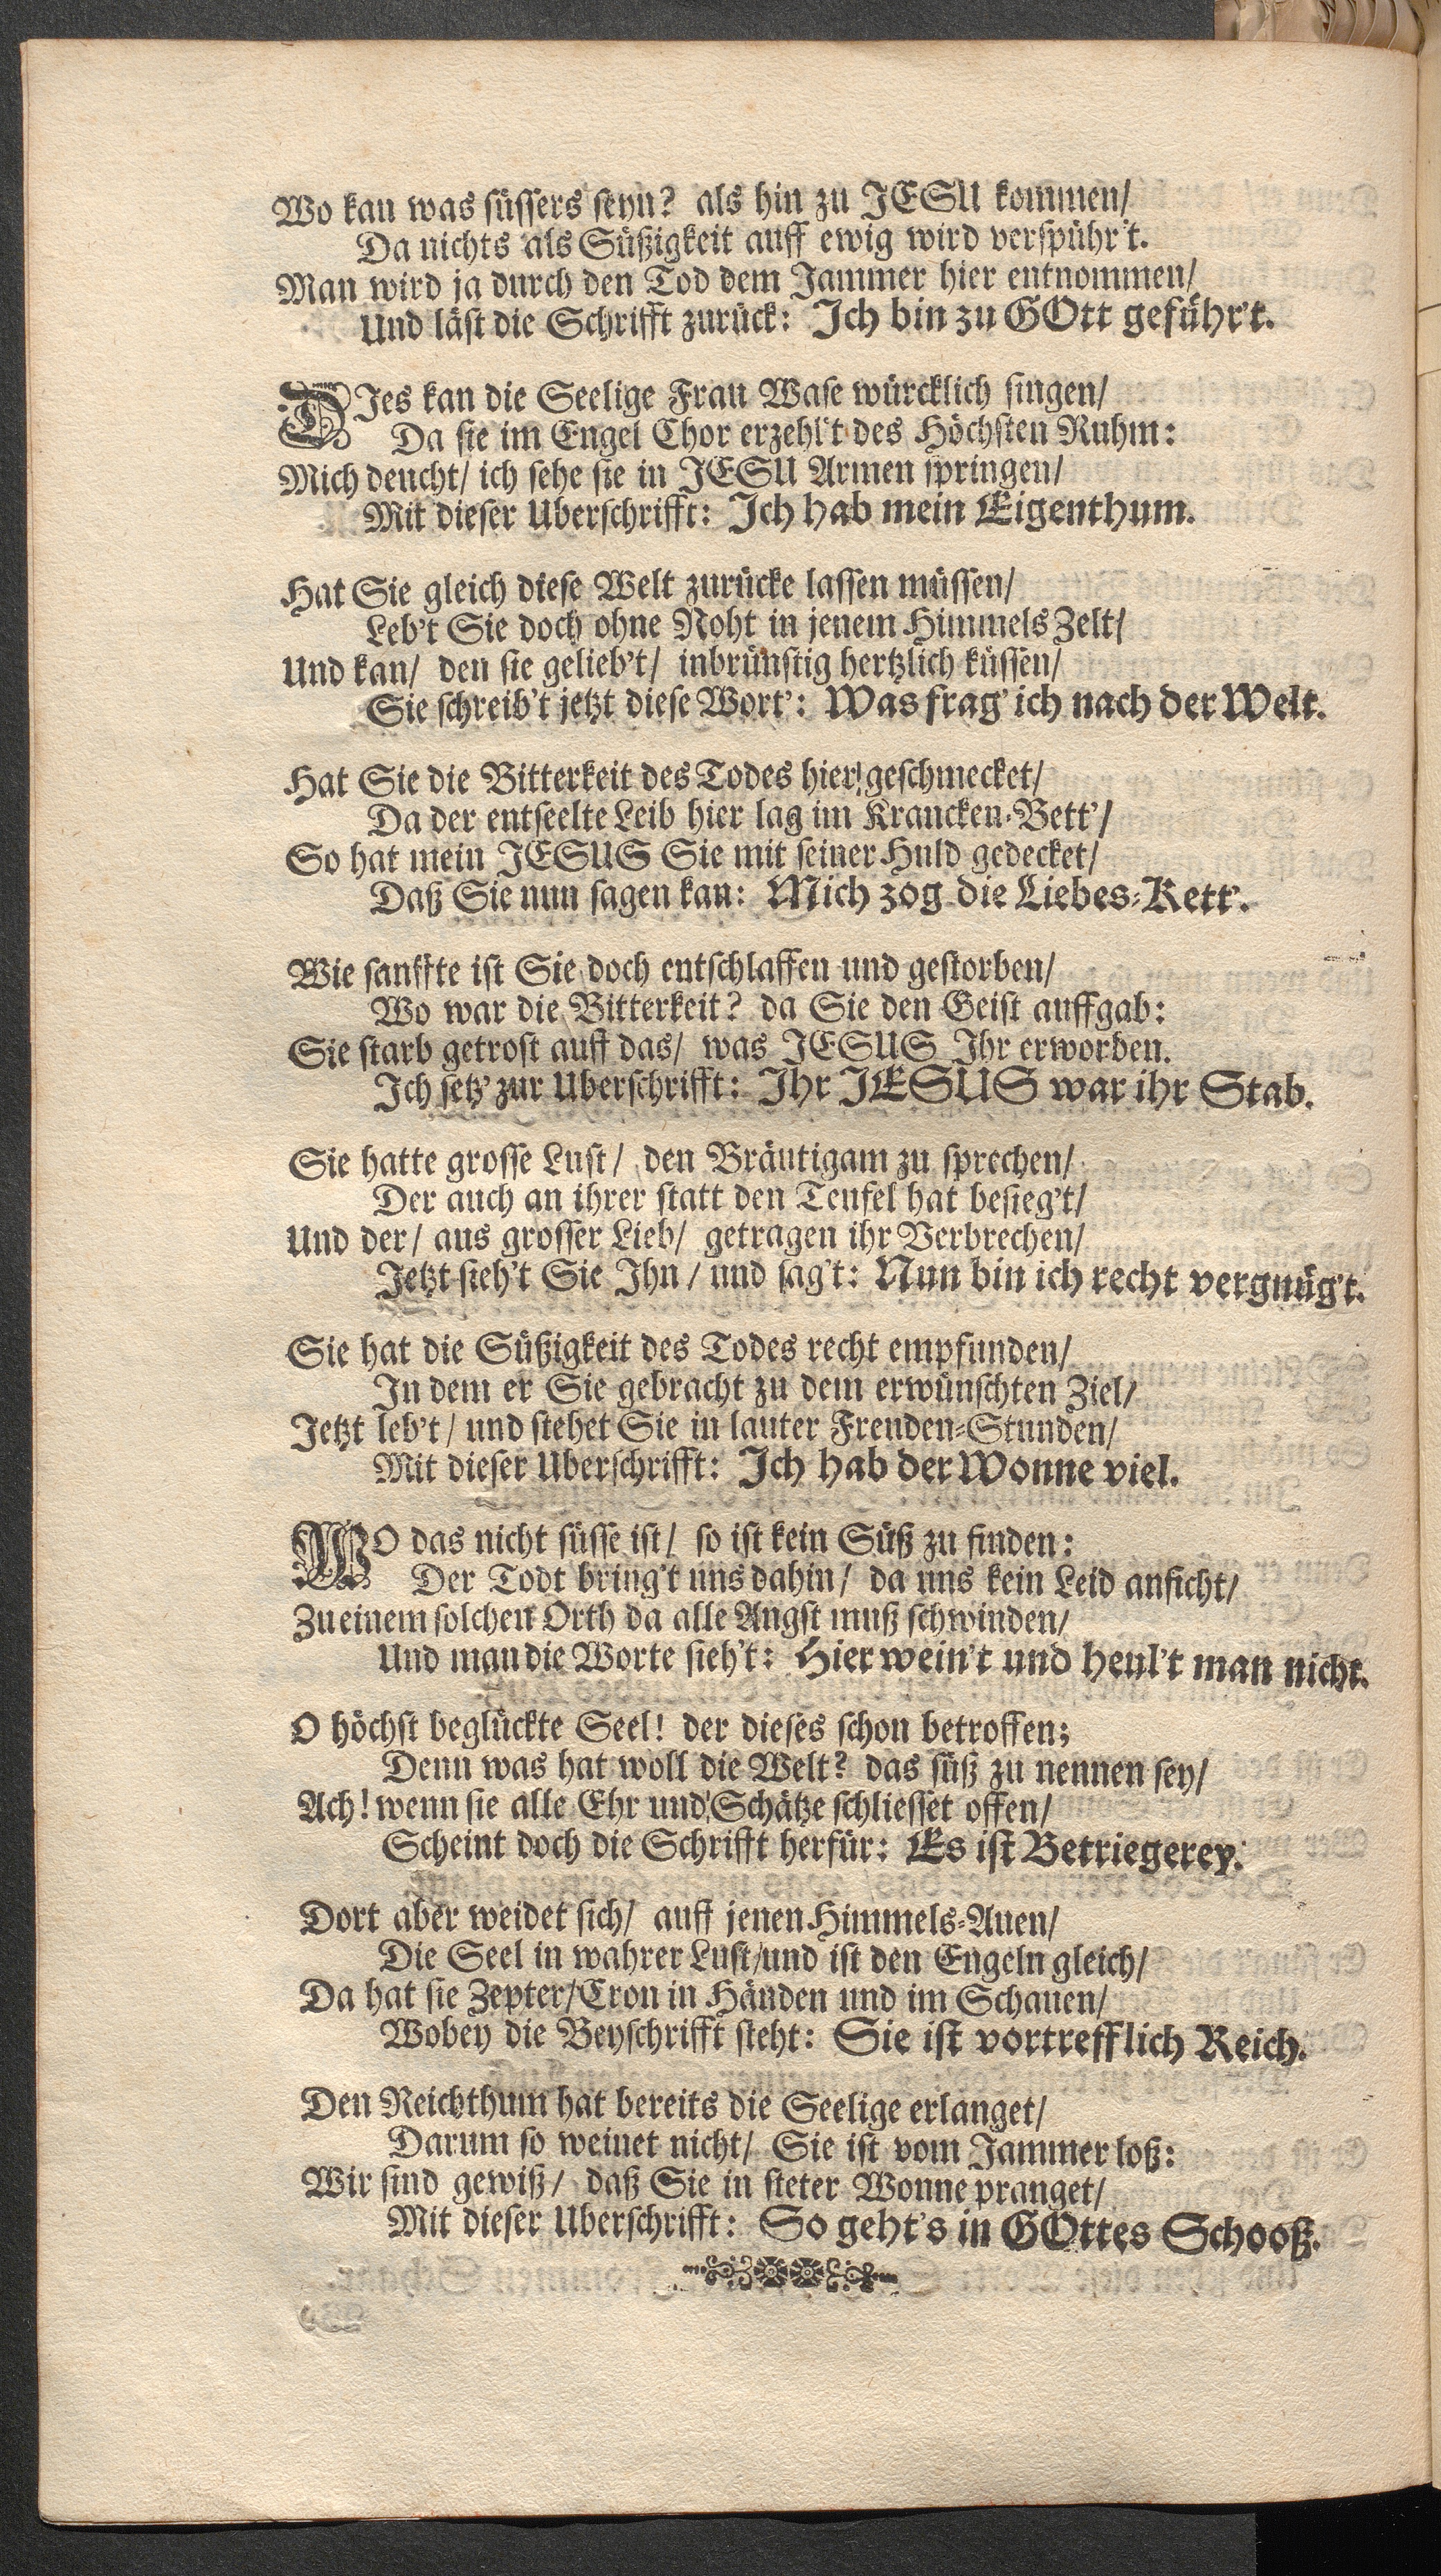 Wo kan was süssers seyn? als hin zu JESU kommen/
Da nichts als Süßigkeit auff ewig wird verspühr't.
Man wird ja durch den Tod dem Jammer hier entnommen/
Und läst die Schrifft zurück: Ich bin zu GOtt geführ't.
DIes kan die Seelige Frau Wase würcklich singen/
Da sie im Engel Chor erzehl't des Höchsten Ruhm:
Mich deucht/ ich sehe sie in JESU Armen springen/
Mit dieser Uberschrifft: Ich hab mein Eigenthum.
Hat Sie gleich diese Welt zurücke lassen müssen/
Leb't Sie doch ohne Noht in jenem Himmels Zelt/
Und kan/ den sie gelieb't/ inbrünstig hertzlich küssen/
Sie schreib't jetzt diese Wort': Was frag' ich nach der Welt.
Hat Sie die Bitterkeit des Todes hier geschmecket/
Da der entseelte Leib hier lag im Krancken-Bett'/
So hat mein JESUS Sie mit seiner Huld gedecket/
Daß Sie nun sagen kan: Mich zog die Liebes-Kett'.
Wie sanffte ist Sie doch entschlaffen und gestorben/
Wo war die Bitterkeit? da Sie den Geist auffgab:
Sie starb getrost auff das/ was JESUS Ihr erworben.
Ich setz' zur Uberschrifft: Ihr JESUS war ihr Stab.
Sie hatte grosse Lust/ den Bräutigam zu sprechen/
Der auch an ihrer statt den Teufel hat besieg't/
Und der/ aus grosser Lieb/ getragen ihr Verbrechen/
Jetzt sieh't Sie Ihn/ und sag't: Nun bin ich recht vergnüg't.
Sie hat die Süßigkeit des Todes recht empfunden/
In dem er Sie gebracht zu dem erwünschten Ziel/
Jetzt leb't/ und stehet Sie in lauter Freuden-Stunden/
Mit dieser Uberschrifft: Ich hab der Wonne viel.
WO das nicht süsse ist/ so ist kein Süß zu finden:
Der Todt bring't uns dahin/ da uns kein Leid anficht/
Zu einem solchen Orth da alle Angst muß schwinden/
Und man die Worte sieh't: Hier wein't und heul't man nicht.
O höchst beglückte Seel! der dieses schon betroffen;
Denn was hat woll die Welt? das süß zu nennen sey/
Ach! wenn sie alle Ehr und Schätze schliesset offen/
Scheint doch die Schrifft herfür: Es ist Betriegerey.
Dort aber weidet sich/ auff jenen Himmels-Auen/
Die Seel in wahrer Lust/und ist den Engeln gleich/
Da hat sie Zepter/Cron in Händen und im Schauen/
Wobey die Beyschrifft steht: Sie ist vortrefflich Reich.
Den Reichthum hat bereits die Seelige erlanget/
Darum so weinet nicht/ Sie ist vom Jammer loß:
Wir sind gewiß/ daß Sie in steter Wonne pranget/
Mit dieser Uberschrifft: So geht's in GOttes Schooß.